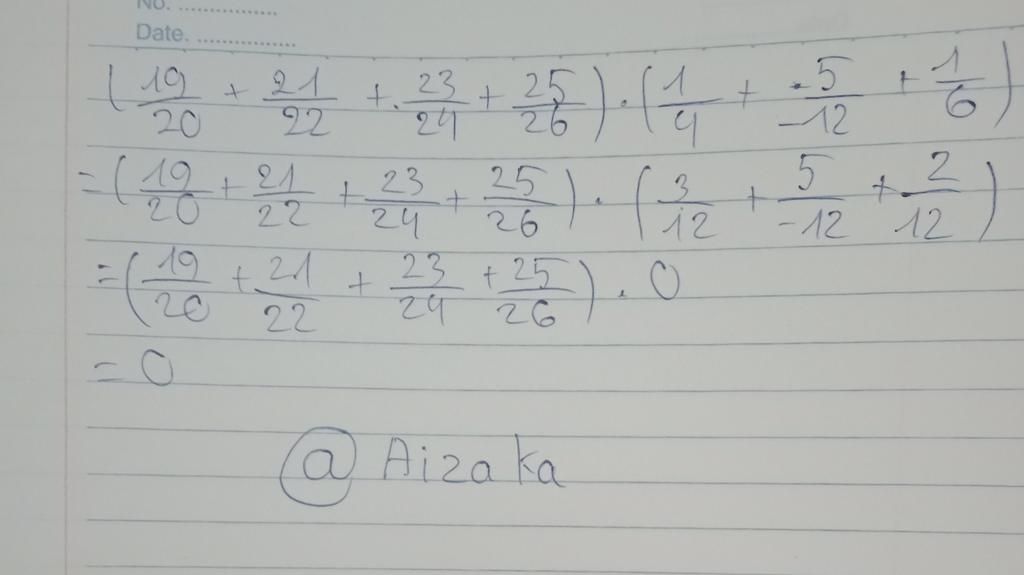 No. ................
Date. ................
(19/20 + 21/22 + 23/24 + 25/26) . (1/4 + 5/-12 + 1/6)
= (19/20 + 21/22 + 23/24 + 25/26) . (3/12 + 5/-12 + 2/12)
= (19/20 + 21/22 + 23/24 + 25/26) . 0
= 0
@ Aizaka